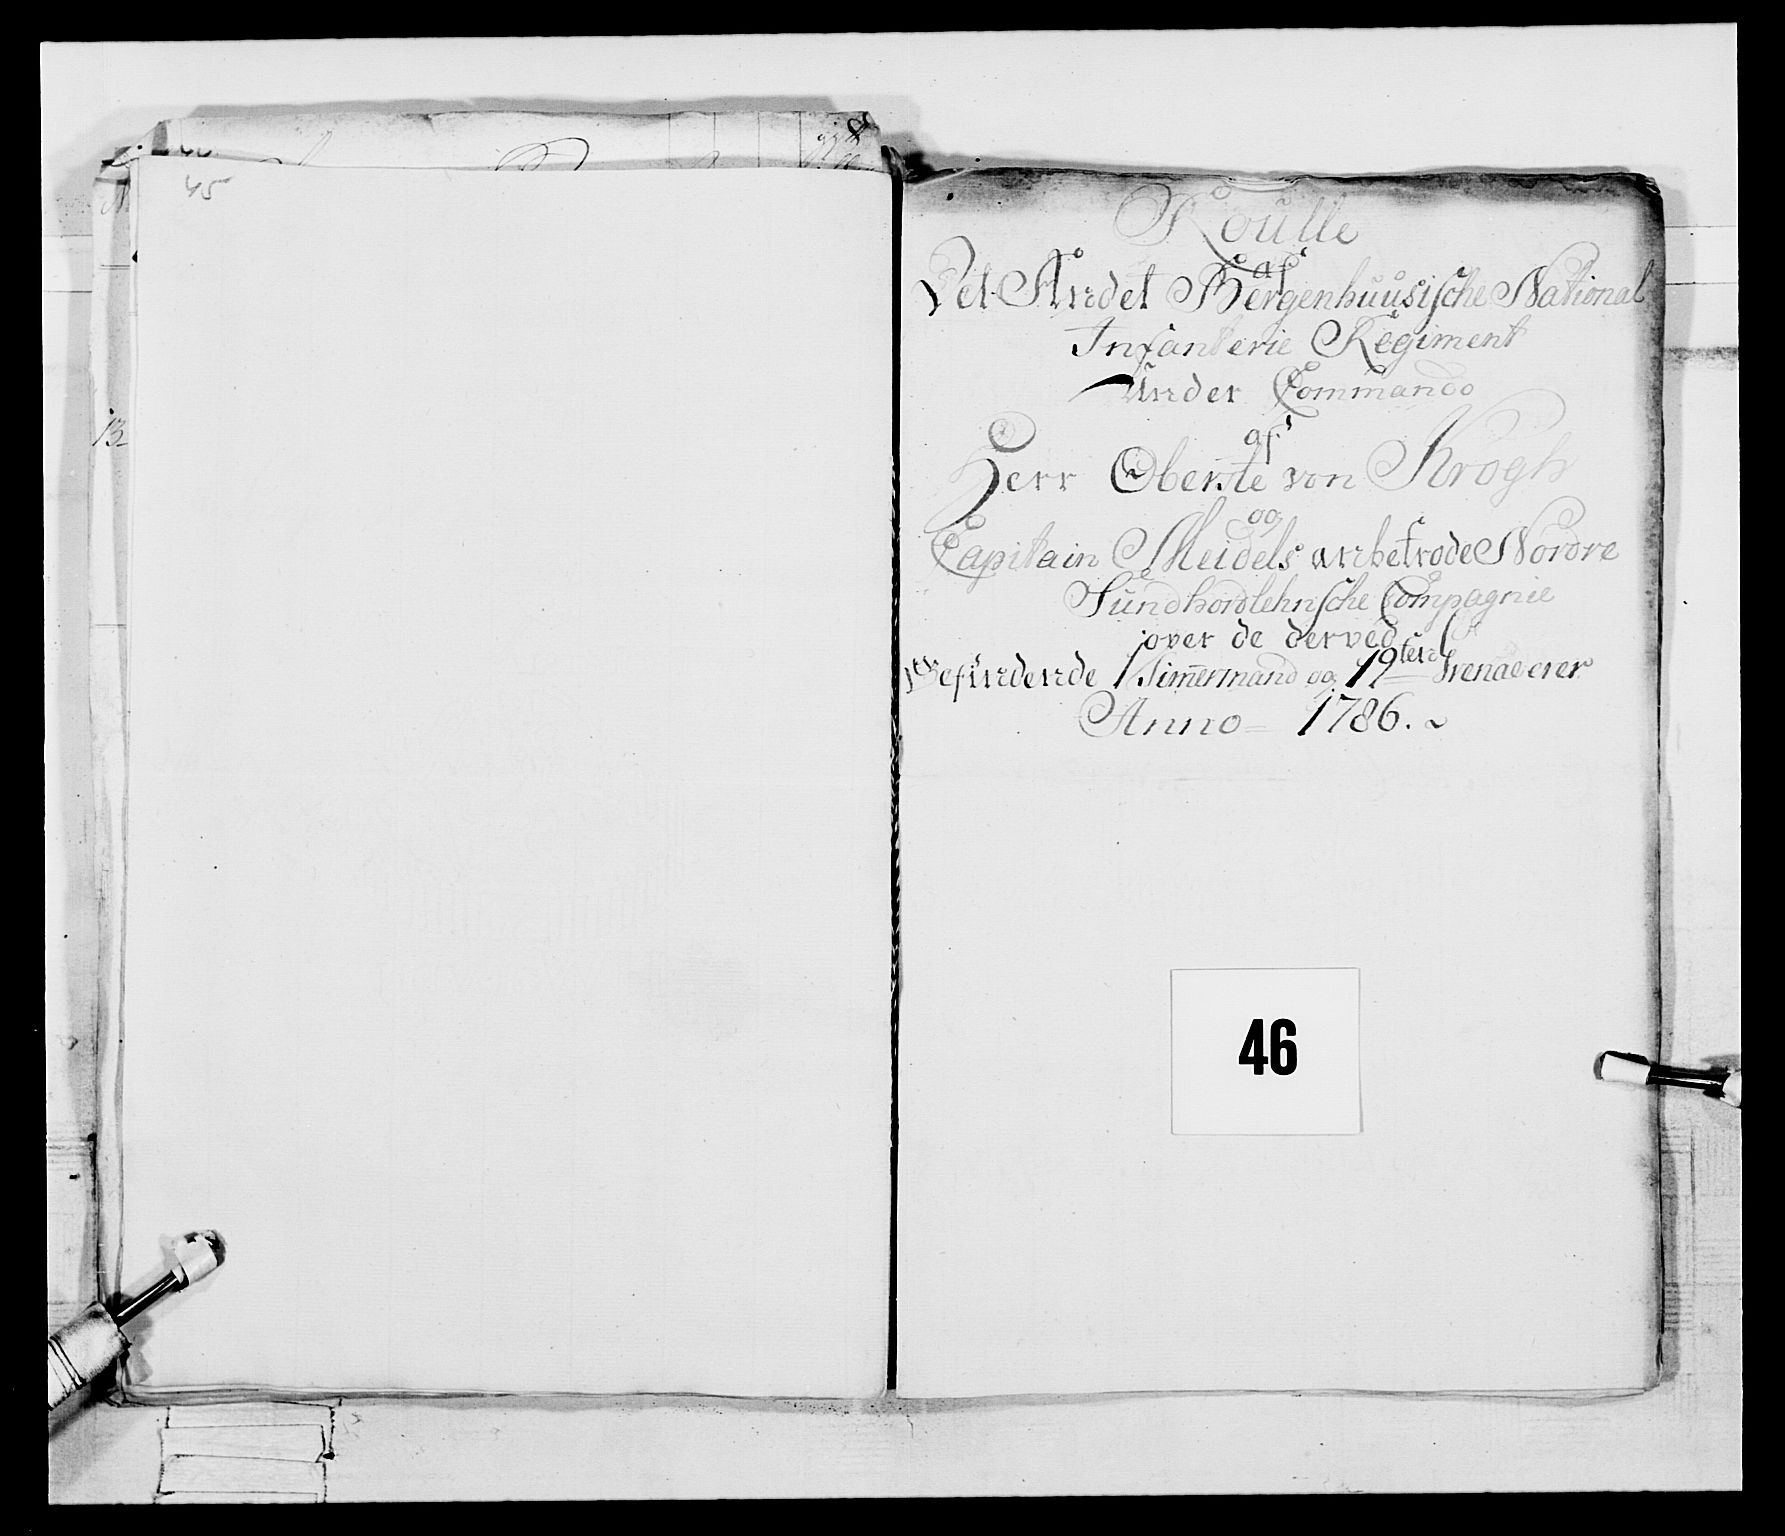 45
13
Roulle
af
Det Andet Bergenhuusische National
Infanterie Regiment
Under Commando
af
Herr Oberste von Krogh
og
Capitain Meidels anbetrode Nordre
Sundhordlehnsche Compagnie
over de derved
Befindende 1 Timermand og 19ten Grenaderer
Anno 1786.
46